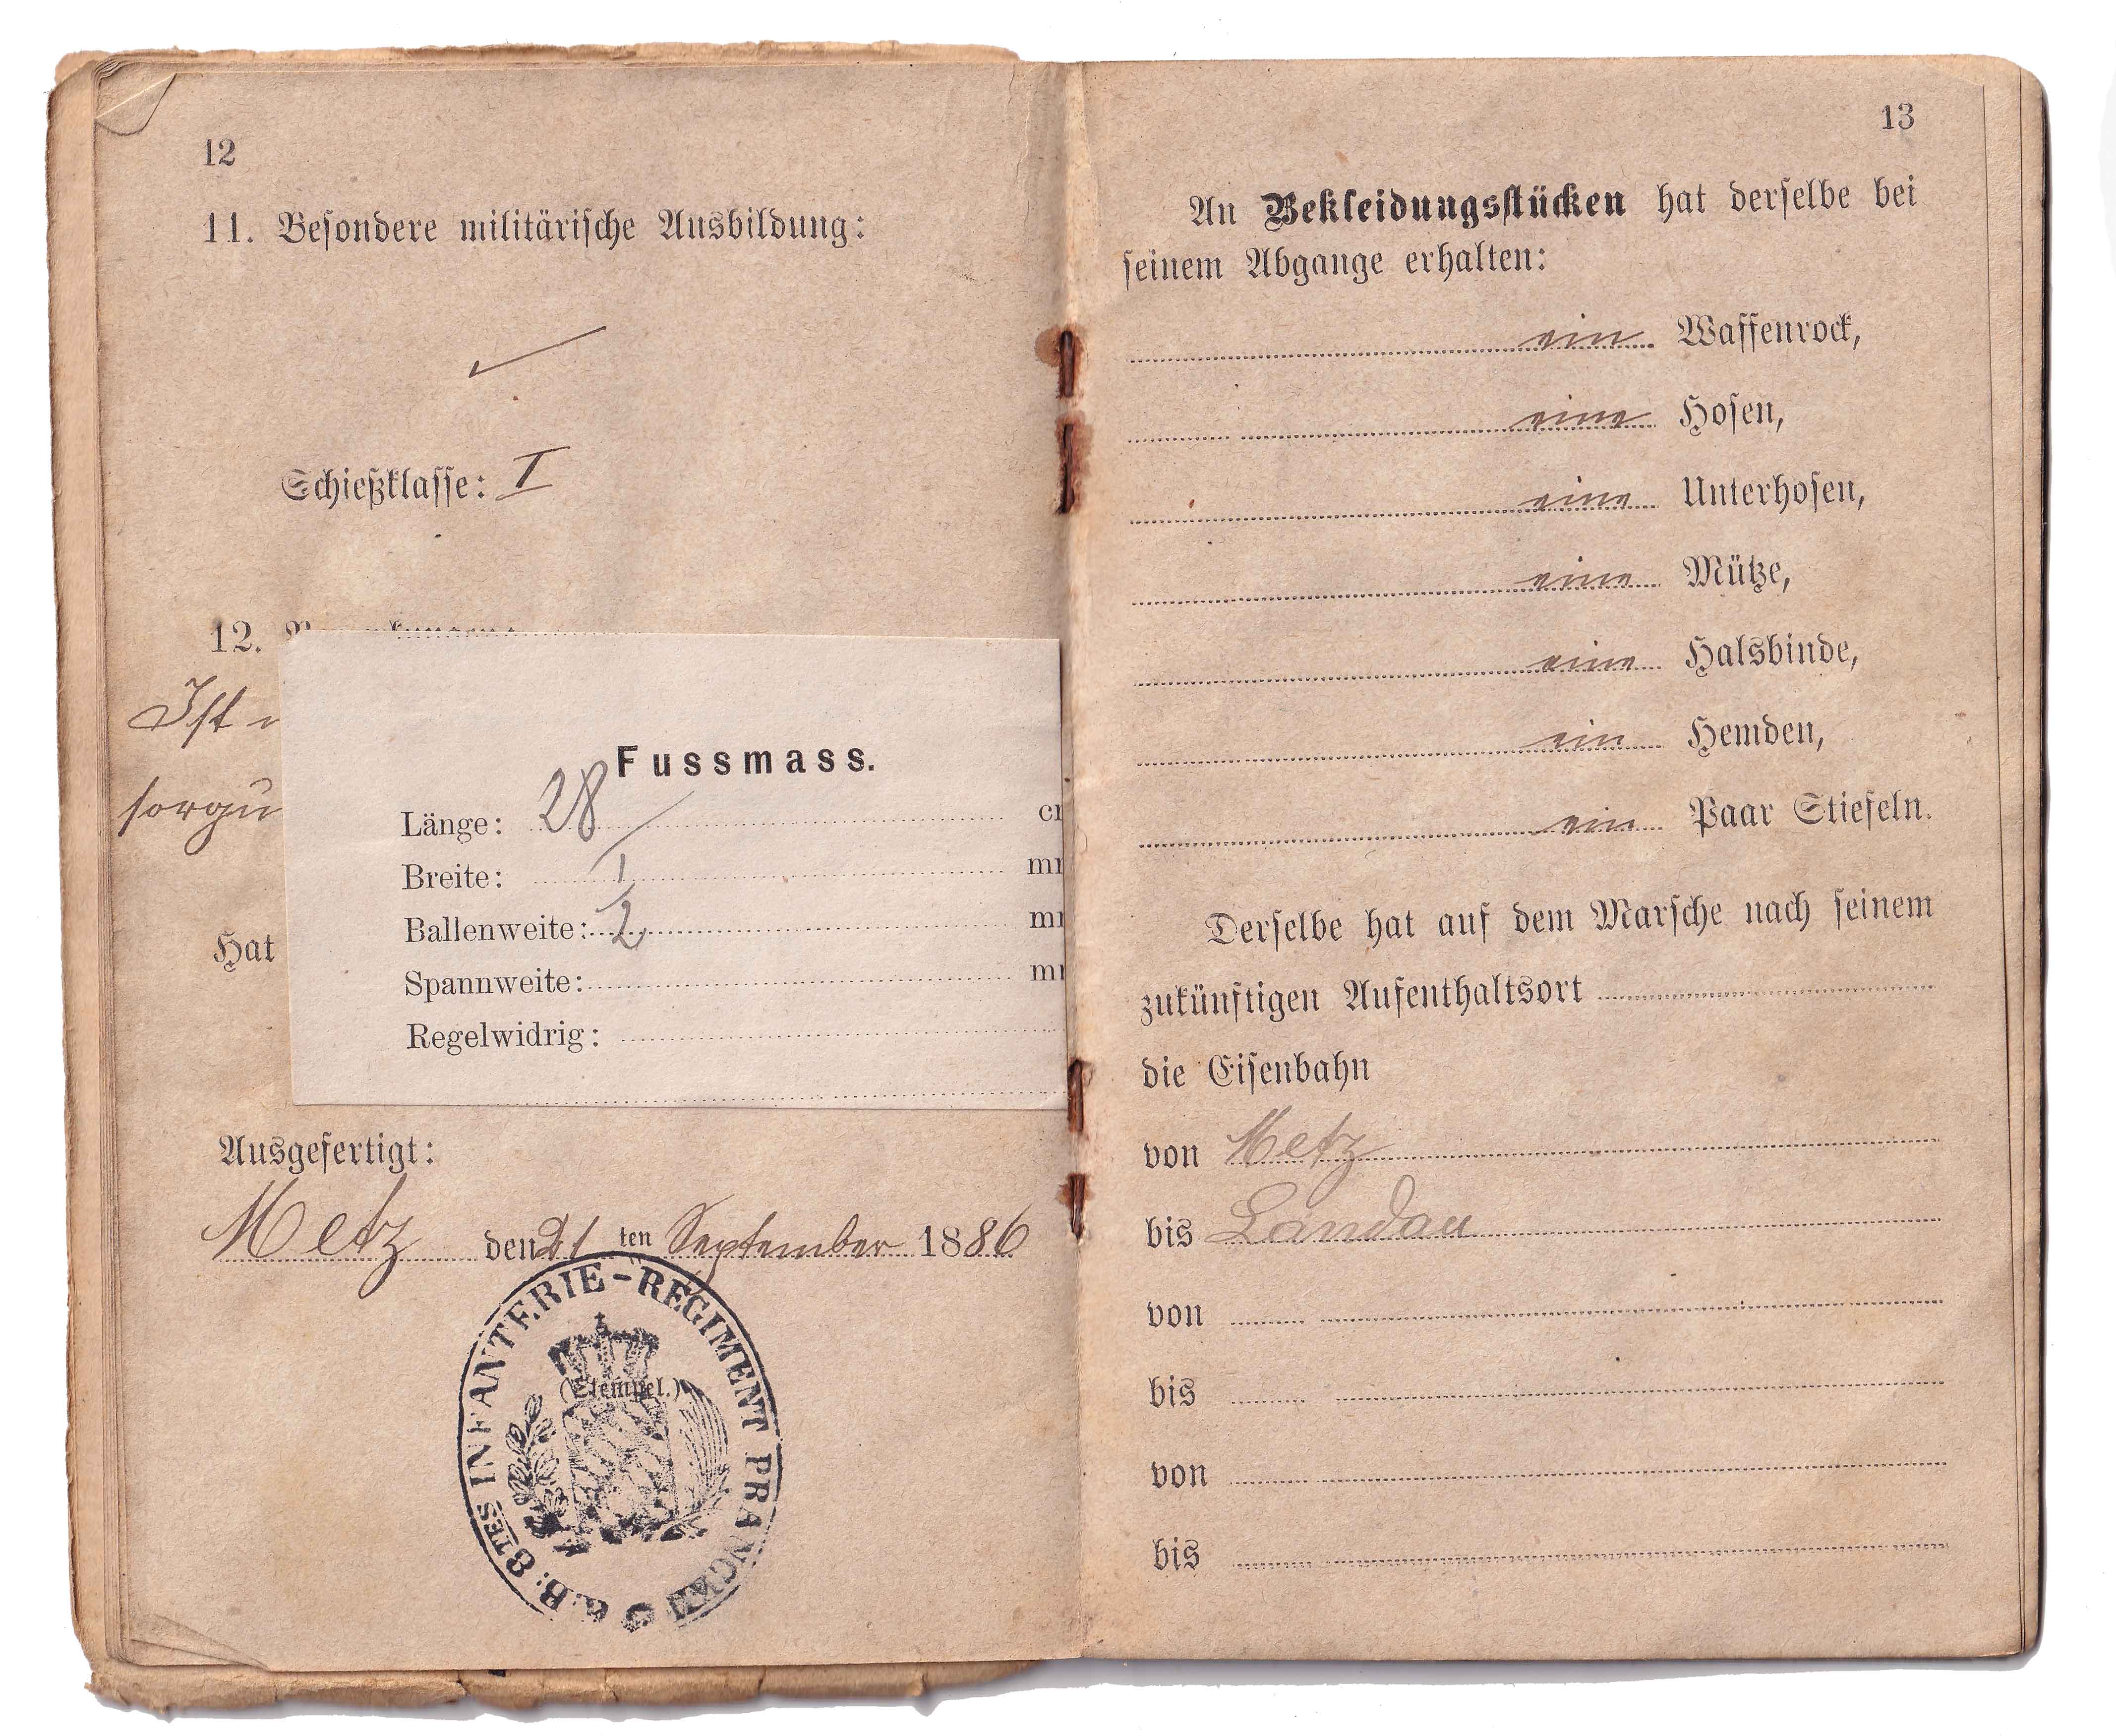 12
11. Besondere militärische Ausbildung:
Schießklasse: I
12.
Ist
sorgu
Hat
Fussmass.
Länge: 28 c
Breite: 1 m
Ballenweite: 2 m
Spannweite: m
Regelwidrig:
Ausgefertigt:
Metz den 21 ten September 1886
(Stempel.)
K.B. 8TES INFANTERIE-REGIMENT PRANCKH
13
An Bekleidungsstücken hat derselbe bei
seinem Abgange erhalten:
ein Waffenrock,
eine Hosen,
eine Unterhosen,
eine Mütze,
eine Halsbinde,
ein Hemden,
ein Paar Stiefeln.
Derselbe hat auf dem Marsche nach seinem
zukünftigen Aufenthaltsort
die Eisenbahn
von Metz
bis Landau
von
bis
von
bis